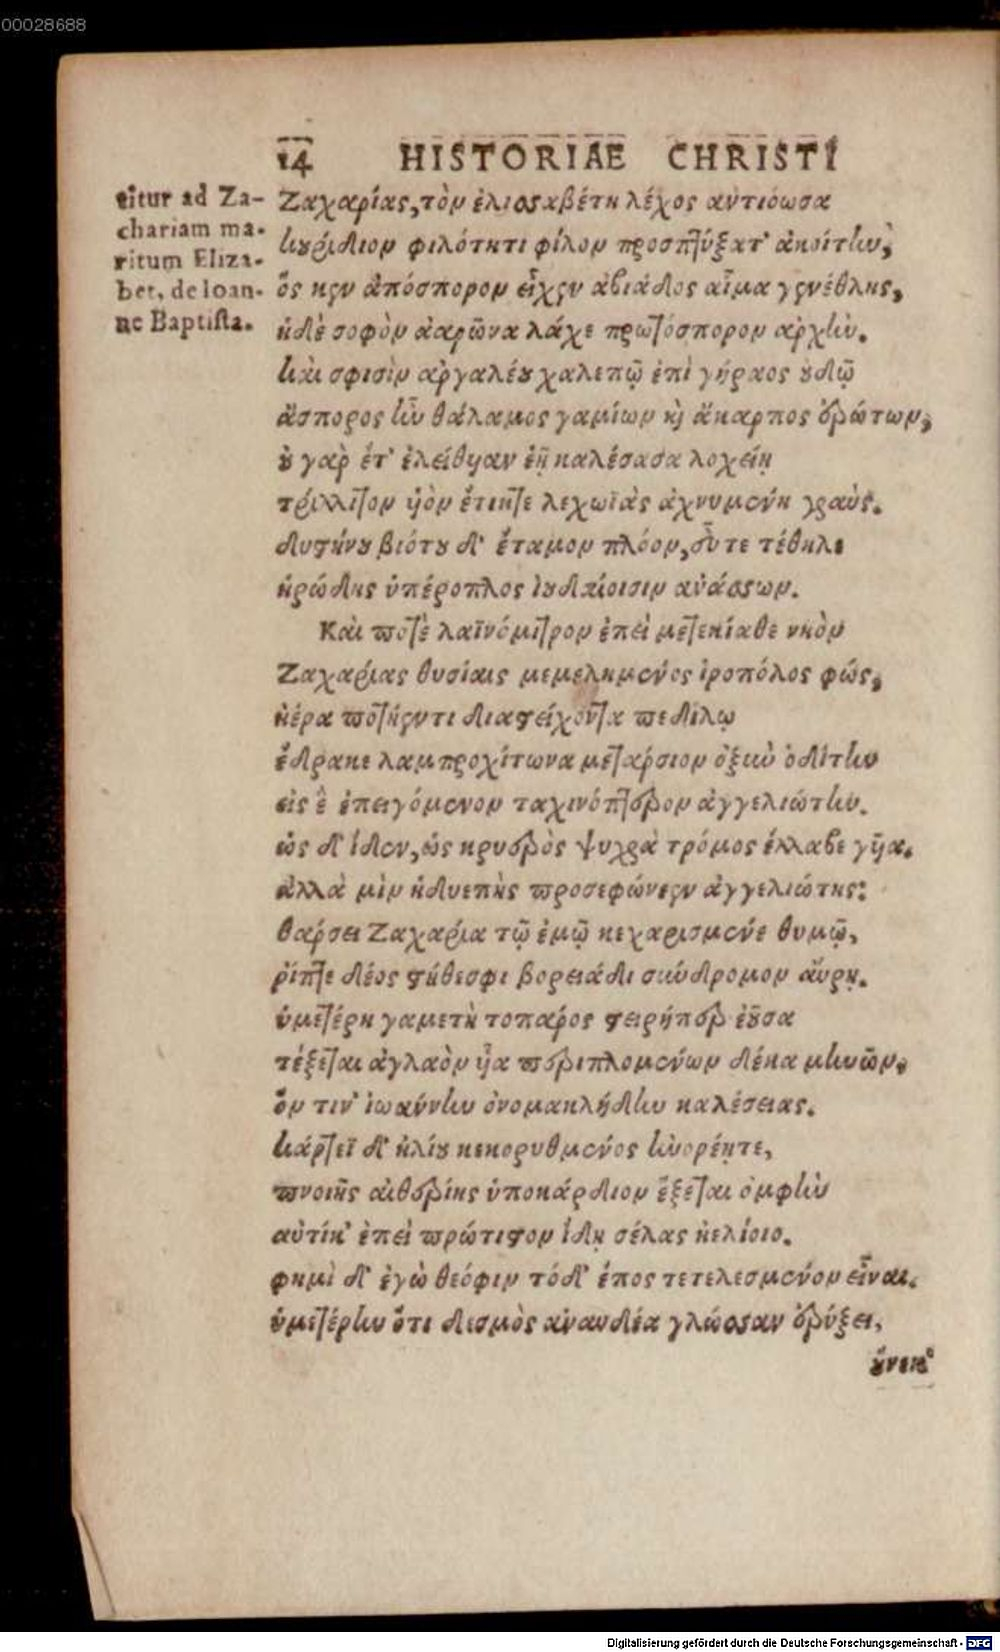 00028688
14 HISTORIAE CHRISTI
citur ad Za-
chariam ma-
ritum Eliza-
bet, de Ioan-
ne Baptista.
Ζαχαρίας, τὸν ἐλισσαβέτη λέχος ἀντιόωσα
κουρίδιον φιλότητι φίλον προσπτύξατ' ἀκοίτην,
ὅς κεν ἀπόσπορον εἶχεν ἀβιάδος αἷμα γενέθλης,
ἠδὲ σοφὸν ἀαρῶνα λάχε πρωτόσπορον ἀρχήν.
καὶ σφισὶν ἀργαλέου χαλεπῷ ἐπὶ γήραος οὐδῷ
ἄσπορος ἦν θάλαμος γαμίων καὶ ἄκαρπος ἐρώτων,
οὐ γὰρ ἔτ' ἐλείθυιαν ἑῇ καλέσασα λοχείῃ
τρίλλιστον υἱὸν ἔτικτε λεχωϊὰς ἀχνυμένη γραῦς.
δυστήνου βιότου δ' ἔταμον πλόον, εὖτε τέθηλε
ἡρώδης ὑπέροπλος ἰουδαίοισιν ἀνάσσων.
Καὶ ποτὲ λαϊνόμιτρον ἐπεὶ μετεκίαθε νηὸν
Ζαχαρίας θυσίαις μεμελημένος ἱροπόλος φώς,
ἠέρα ποτήεντι διαστείχοντα πεδίλῳ
ἔδρακε λαμπροχίτωνα μετάρσιον ὀξὺν ὁδίτην
εἰς ἓ ἐπειγόμενον ταχινόπτερον ἀγγελιώτην.
ὡς δ' ἴδεν, ὡς κρυερὸς ψυχρὰ τρόμος ἔλλαβε γυῖα.
ἀλλὰ μὶν ἡδυεπὴς προσεφώνεεν ἀγγελιώτης:
θάρσει Ζαχαρία τῷ ἐμῷ κεχαρισμένε θυμῷ,
ῥίπτε δέος στήθεσφι βορειάδι σύνδρομον αὔρῃ.
ὑμετέρη γαμετὴ τοπάρος στειρήπερ ἐοῦσα
τέξεται ἀγλαὸν υἷα περιπλομένων δέκα μηνῶν,
ὅν τιν' ἰωάννην ὀνομακλήδην καλέσειας.
κάρτεϊ δ' ἠλίου κεκορυθμένος ἠνορέῃτε,
πνοιῆς αἰθερίης ὑποκάρδιον ἕξεται ὀμφὴν
αὐτίκ' ἐπεὶ πρώτιστον ἴδῃ σέλας ἠελίοιο.
φημὶ δ' ἐγὼ θεόφιν τόδ' ἔπος τετελεσμένον εἶναι.
ὑμετέρην ὅτι δεσμὸς ἀναυδέα γλῶσσαν ἐρύξει,
οὕνεκ'
Digitalisierung gefördert durch die Deutsche Forschungsgemeinschaft - DFG